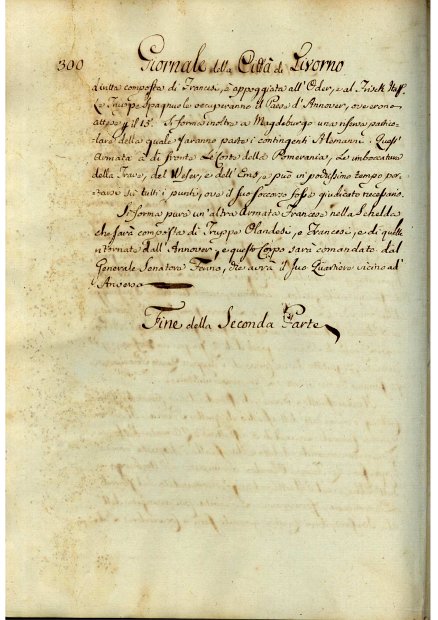 300 Giornale della Città di Livorno
tutta composta di Francesi, è appoggiata all'Oder, e al Frisch Haff.
Le Truppe Spagnuole occuperanno il Paese d'Annover, ove erono
attese il 15. Si forma inoltre a Magdeburgo una riserva partico-
lare della quale faranno parte i contingenti Alemanni. Quest'
Armata à di fronte le Coste della Pomerania, Le imboccature
della Trave, del Weser, e dell'Ems, e può in pochissimo tempo por-
tarsi su tutti i punti, ove il suo soccorso fosse giudicato necessario.
Si forma pure un'altra Armata Francese nella Schelda
che sarà composta di Truppe Olandesi, e Francesi, e di quelle
ritornate dall'Annover, e questo Corpo sarà comandato dal
Generale Senatore che avrà il suo Quartiere vicino ad
Anversa
Fine della Seconda Parte